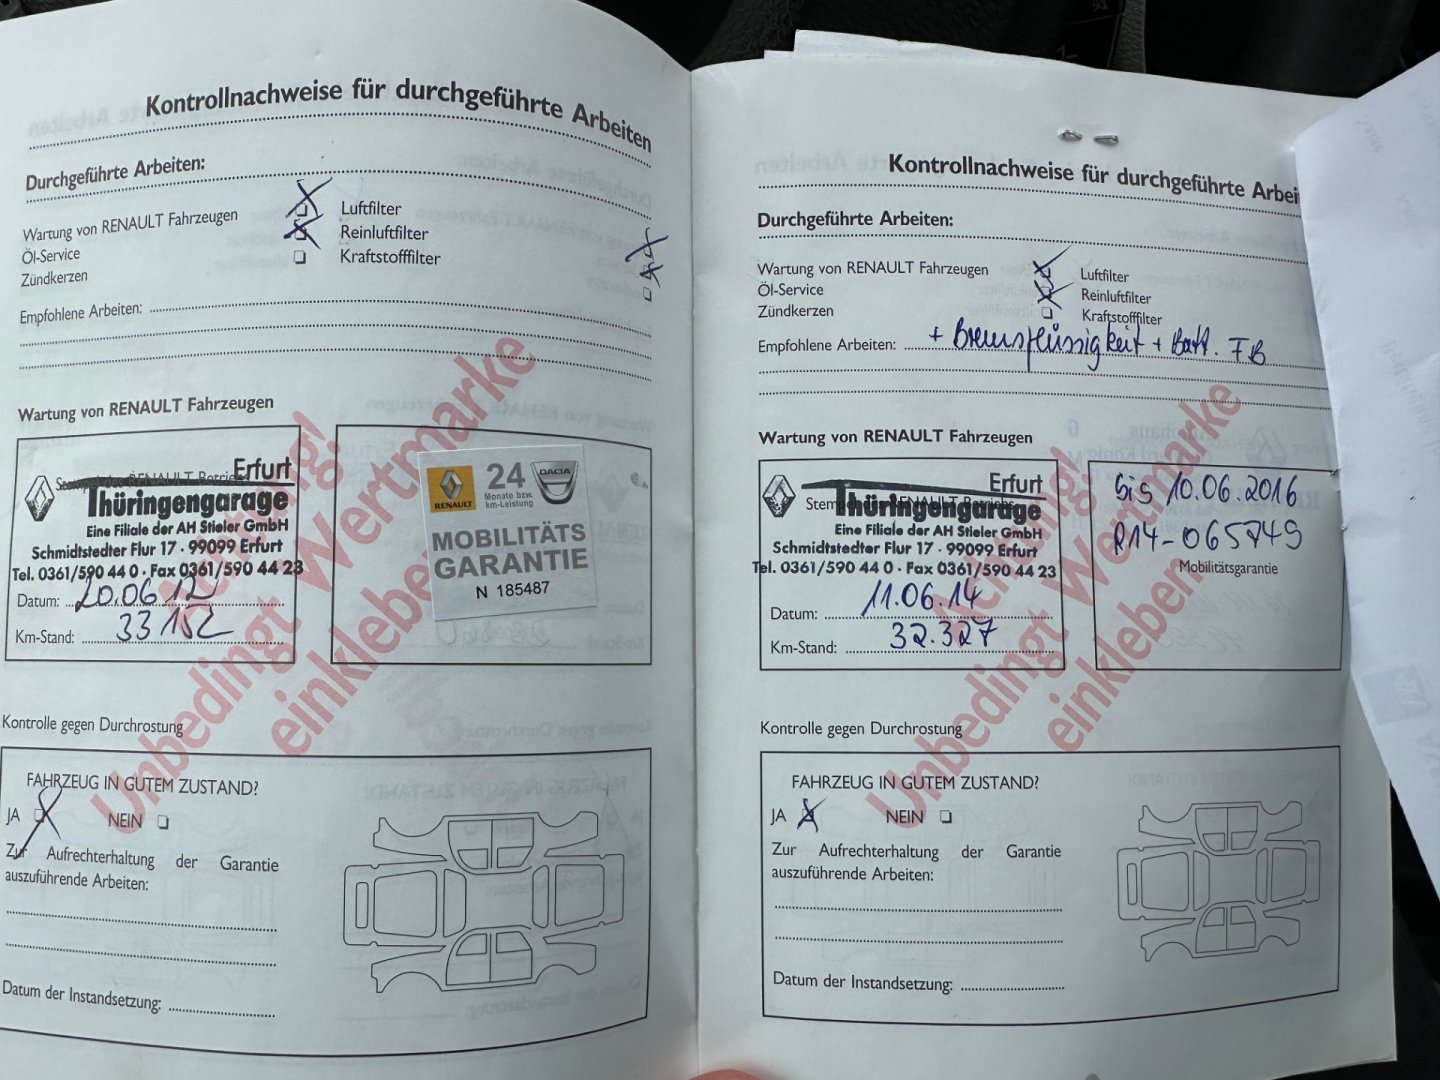 Kontrollnachweise für durchgeführte Arbeiten
Durchgeführte Arbeiten:
Wartung von RENAULT Fahrzeugen
Luftfilter
Öl-Service
Reinluftfilter
Zündkerzen
Kraftstofffilter
Empfohlene Arbeiten:
Wartung von RENAULT Fahrzeugen
Stempel des RENAULT Betriebs
Erfurt
Thüringengarage
Eine Filiale der AH Stieler GmbH
Schmidtstedter Flur 17 · 99099 Erfurt
Tel. 0361/590 44 0 · Fax 0361/590 44 23
Datum: 20.06.12
Km-Stand: 33152
RENAULT
24
Monate bzw.
km-Leistung
DACIA
MOBILITÄTS
GARANTIE
N 185487
Achtung!
Unbedingt Wertmarke
einkleben
Kontrolle gegen Durchrostung
FAHRZEUG IN GUTEM ZUSTAND?
JA NEIN
Zur Aufrechterhaltung der Garantie
auszuführende Arbeiten:
Datum der Instandsetzung:
Kontrollnachweise für durchgeführte Arbei
Durchgeführte Arbeiten:
Wartung von RENAULT Fahrzeugen
Luftfilter
Öl-Service
Reinluftfilter
Zündkerzen
Kraftstofffilter
Empfohlene Arbeiten: + Bremsflüssigkeit + Batt. FB
Wartung von RENAULT Fahrzeugen
Erfurt
Thüringengarage
Eine Filiale der AH Stieler GmbH
Schmidtstedter Flur 17 · 99099 Erfurt
Tel. 0361/590 44 0 · Fax 0361/590 44 23
Datum: 11.06.14
Km-Stand: 32.327
bis 10.06.2016
R14-065749
Mobilitätsgarantie
Achtung!
Unbedingt Wertmarke
einkleben
Kontrolle gegen Durchrostung
FAHRZEUG IN GUTEM ZUSTAND?
JA NEIN
Zur Aufrechterhaltung der Garantie
auszuführende Arbeiten:
Datum der Instandsetzung: